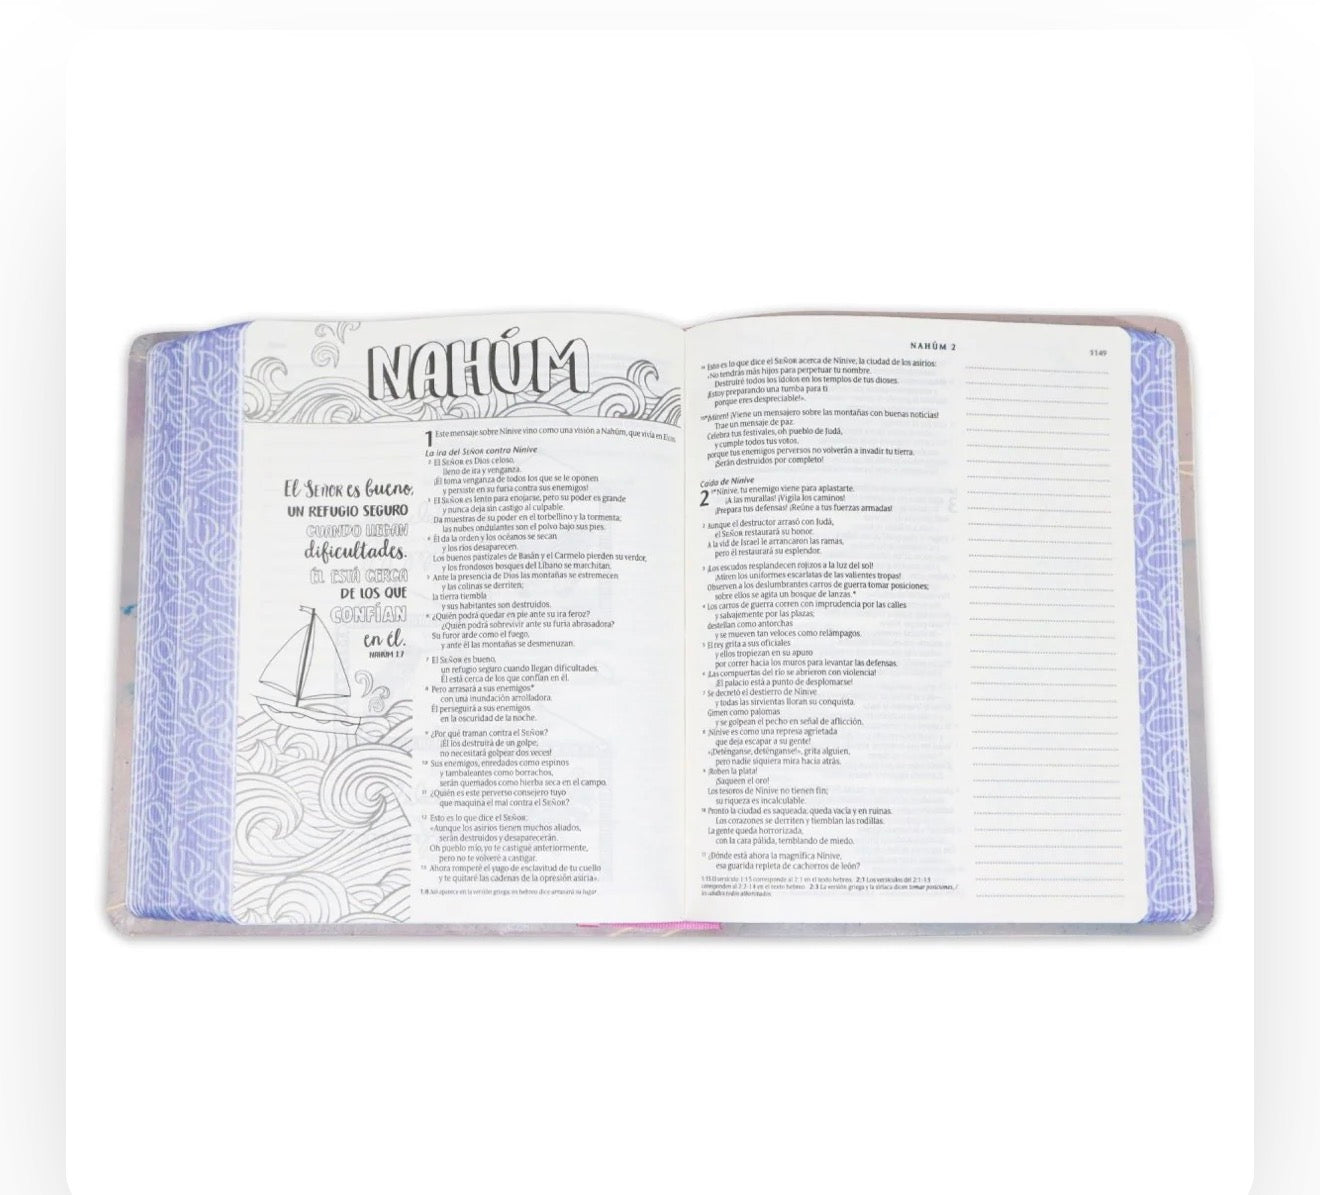 NAHÚM
El SEÑOR es bueno,
UN REFUGIO SEGURO
CUANDO LLEGAN
dificultades.
ÉL ESTÁ CERCA
DE LOS QUE
CONFÍAN
en él.
NAHÚM 1:7
1 Este mensaje sobre Nínive vino como una visión a Nahúm, que vivía en Elcos.
La ira del SEÑOR contra Nínive
2 El SEÑOR es Dios celoso,
lleno de ira y venganza.
¡Él toma venganza de todos los que se le oponen
y persiste en su furia contra sus enemigos!
3 El SEÑOR es lento para enojarse, pero su poder es grande
y nunca deja sin castigo al culpable.
Da muestras de su poder en el torbellino y la tormenta;
las nubes ondulantes son el polvo bajo sus pies.
4 Él da la orden y los océanos se secan
y los ríos desaparecen.
Los buenos pastizales de Basán y el Carmelo pierden su verdor,
y los frondosos bosques del Líbano se marchitan.
5 Ante la presencia de Dios las montañas se estremecen
y las colinas se derriten;
la tierra tiembla
y sus habitantes son destruidos.
6 ¿Quién podrá quedar en pie ante su ira feroz?
¿Quién podrá sobrevivir ante su furia abrasadora?
Su furor arde como el fuego,
y ante él las montañas se desmenuzan.
7 El SEÑOR es bueno,
un refugio seguro cuando llegan dificultades.
Él está cerca de los que confían en él.
8 Pero arrasará a sus enemigos*
con una inundación arrolladora.
Él perseguirá a sus enemigos
en la oscuridad de la noche.
9 ¿Por qué traman contra el SEÑOR?
¡Él los destruirá de un golpe;
no necesitará golpear dos veces!
10 Sus enemigos, enredados como espinos
y tambaleantes como borrachos,
serán quemados como hierba seca en el campo.
11 ¿Quién es este perverso consejero tuyo
que maquina el mal contra el SEÑOR?
12 Esto es lo que dice el SEÑOR:
«Aunque los asirios tienen muchos aliados,
serán destruidos y desaparecerán.
Oh pueblo mío, yo te castigué anteriormente,
pero no te volveré a castigar.
13 Ahora romperé el yugo de esclavitud de tu cuello
y te quitaré las cadenas de la opresión asiria».
1:8 Así aparece en la versión griega; en hebreo dice arrasará su lugar.
NAHÚM 2
1149
14 Esto es lo que dice el SEÑOR acerca de Nínive, la ciudad de los asirios:
«No tendrás más hijos para perpetuar tu nombre.
Destruiré todos los ídolos en los templos de tus dioses.
¡Estoy preparando una tumba para ti
porque eres despreciable!».
15 *¡Miren! ¡Viene un mensajero sobre las montañas con buenas noticias!
Trae un mensaje de paz.
Celebra tus festivales, oh pueblo de Judá,
y cumple todos tus votos,
porque tus enemigos perversos no volverán a invadir tu tierra.
¡Serán destruidos por completo!
Caída de Nínive
2 1*Nínive, tu enemigo viene para aplastarte.
¡A las murallas! ¡Vigila los caminos!
¡Prepara tus defensas! ¡Reúne a tus fuerzas armadas!
2 Aunque el destructor arrasó con Judá,
el SEÑOR restaurará su honor.
A la vid de Israel le arrancaron las ramas,
pero él restaurará su esplendor.
3 ¡Los escudos resplandecen rojizos a la luz del sol!
¡Miren los uniformes escarlatas de las valientes tropas!
Observen a los deslumbrantes carros de guerra tomar posiciones;
sobre ellos se agita un bosque de lanzas.*
4 Los carros de guerra corren con imprudencia por las calles
y salvajemente por las plazas;
destellan como antorchas
y se mueven tan veloces como relámpagos.
5 El rey grita a sus oficiales
y ellos tropiezan en su apuro
por correr hacia los muros para levantar las defensas.
6 ¡Las compuertas del río se abrieron con violencia!
¡El palacio está a punto de desplomarse!
7 Se decretó el destierro de Nínive
y todas las sirvientas lloran su conquista.
Gimen como palomas
y se golpean el pecho en señal de aflicción.
8 ¡Nínive es como una represa agrietada
que deja escapar a su gente!
«¡Deténganse, deténganse!», grita alguien,
pero nadie siquiera mira hacia atrás.
9 ¡Roben la plata!
¡Saqueen el oro!
Los tesoros de Nínive no tienen fin;
su riqueza es incalculable.
10 Pronto la ciudad es saqueada; queda vacía y en ruinas.
Los corazones se derriten y tiemblan las rodillas.
La gente queda horrorizada,
con la cara pálida, temblando de miedo.
11 ¿Dónde está ahora la magnífica Nínive,
esa guarida repleta de cachorros de león?
1:15 El versículo 1:15 corresponde al 2:1 en el texto hebreo. 2:1 Los versículos del 2:1-13
corresponden al 2:2-14 en el texto hebreo. 2:3 La versión griega y la siríaca dicen tomar posiciones, /